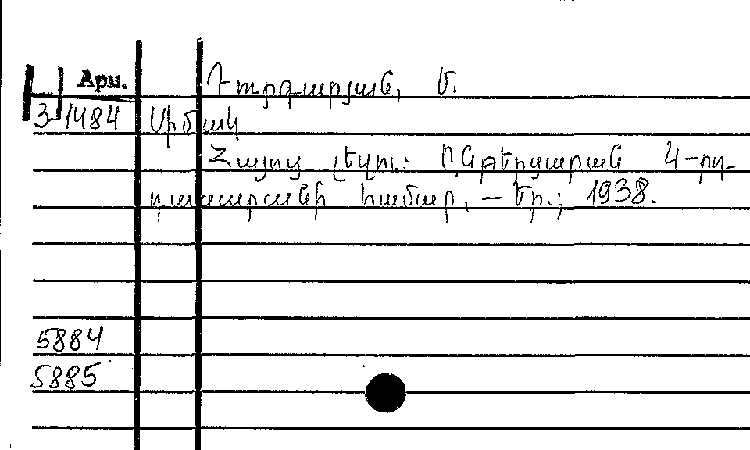 Арм.
Մ.
3-1484 Միմակ
Հայոց լեզու: Ընթերցարան 4-րդ
դասարանի համար, – Եր., 1938.
5884
5885